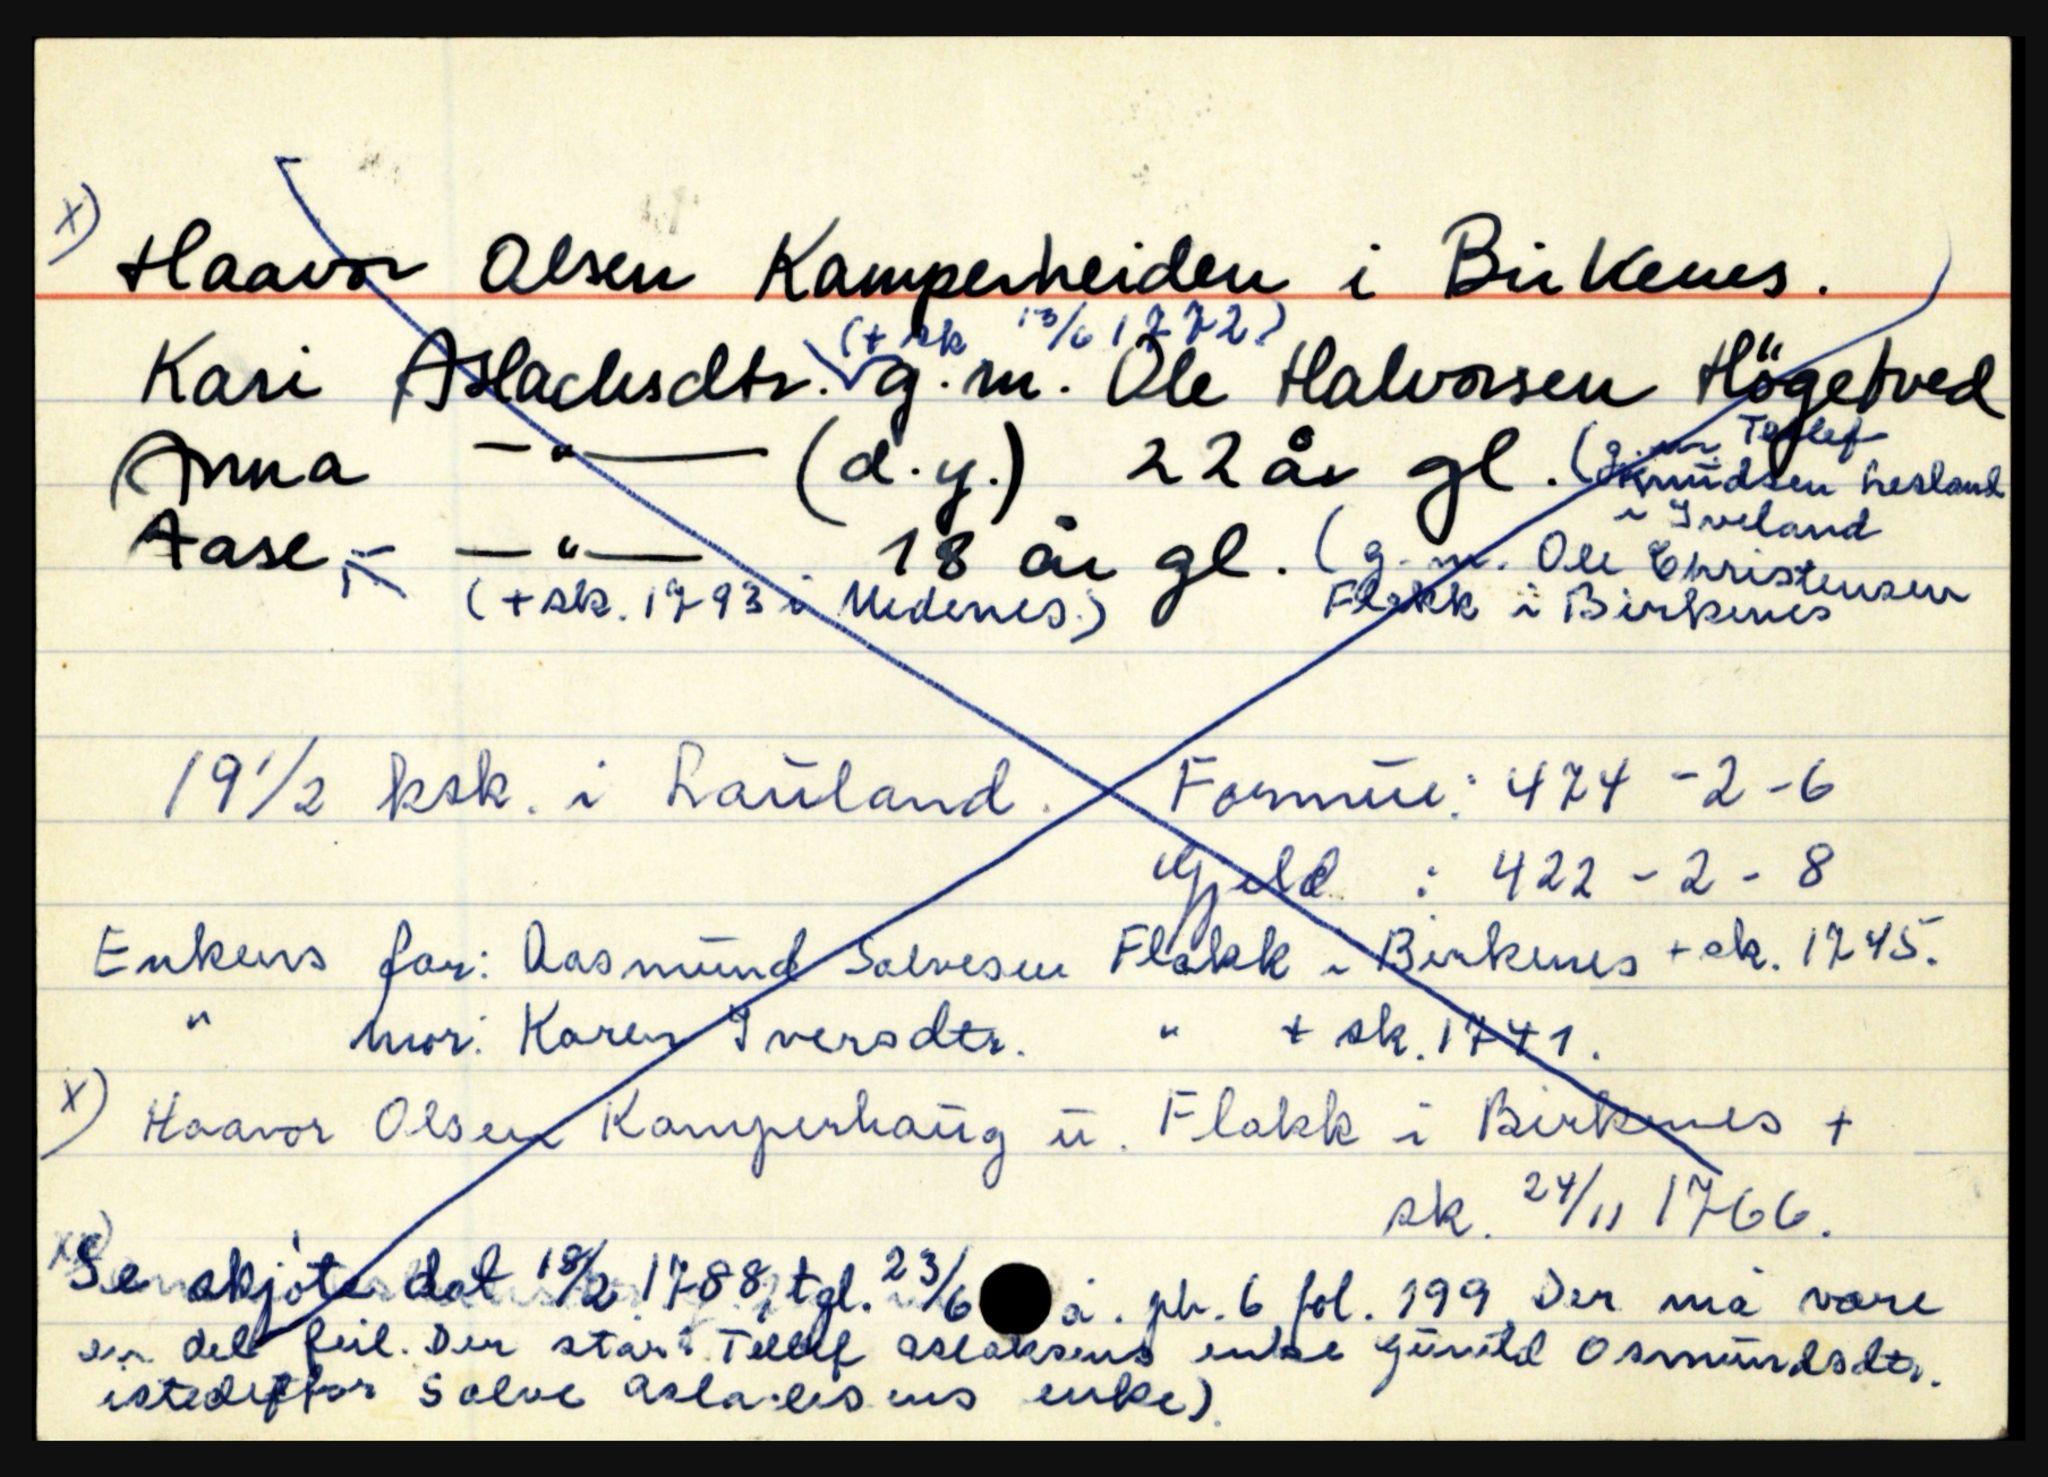 x) Haavor Olsen Kamperheiden i Birkenes.
(+ sk 13/6 1772)
Kari Aslachsdtr. g.m. Ole Halvorsen Högetved
Anna —"— (d.y.) 22 år gl. (g.m. Tellef
Knudsen Lesland
i Iveland
Aase —"— 18 år gl. (g.m. Ole Christensen
(+ sk. 1793 i Nedenes.) Flakk i Birkenes
19 1/2 ksk. i Lauland. Formue: 474 - 2 - 6
Gjeld : 422 - 2 - 8
Enkens far: Aasmund Salvesen Flakk i Birkenes + sk. 1745.
" mor: Karen Iversdtr. " + sk. 1741.
x) Haavor Olsen Kamperhaug u. Flakk i Birkenes +
sk. 24/11 1766.
Se skjöte dat 18/2 1788, tgl. 23/6 å. pb. 6 fol. 199 Der må vare
en del feil. Der står: Tellef aslaksens enke Gunild Osmundsdtr.
istedetfor Salve aslaksens enke).